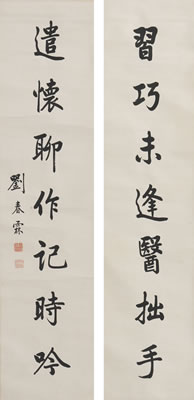 習巧未逢醫拙手
遣懷聊作记時吟
劉春霖